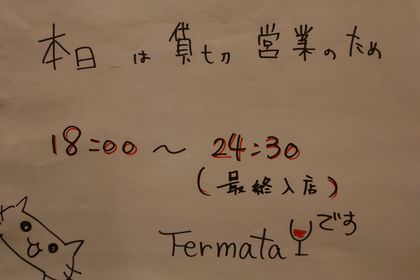 本日は貸切営業のため
18:00～24:30
(最終入店)
Fermataです